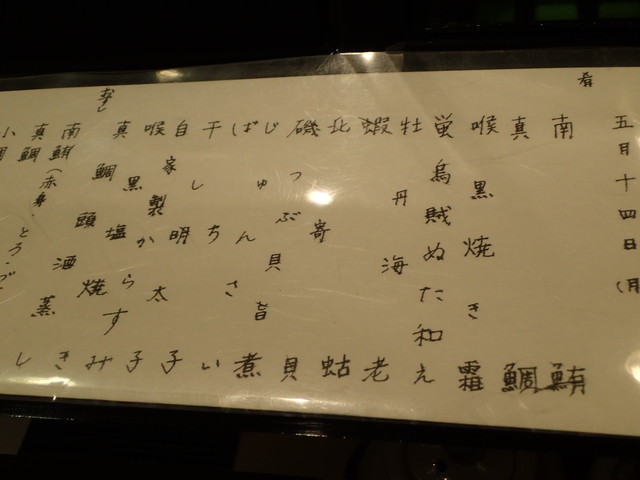 五月十四日(月
肴
南鮪
真鯛
喉黒焼き霜
蛍烏賊ぬた和え
牡丹海老
蝦蛄
北寄貝
磯つぶ貝旨煮
じゅんさい
ばち子
干し明太子
自家製からすみ
喉黒塩焼き
真鯛頭酒蒸し
おすし
南鮪(赤身・とろ・づ
真鯛
小鯛